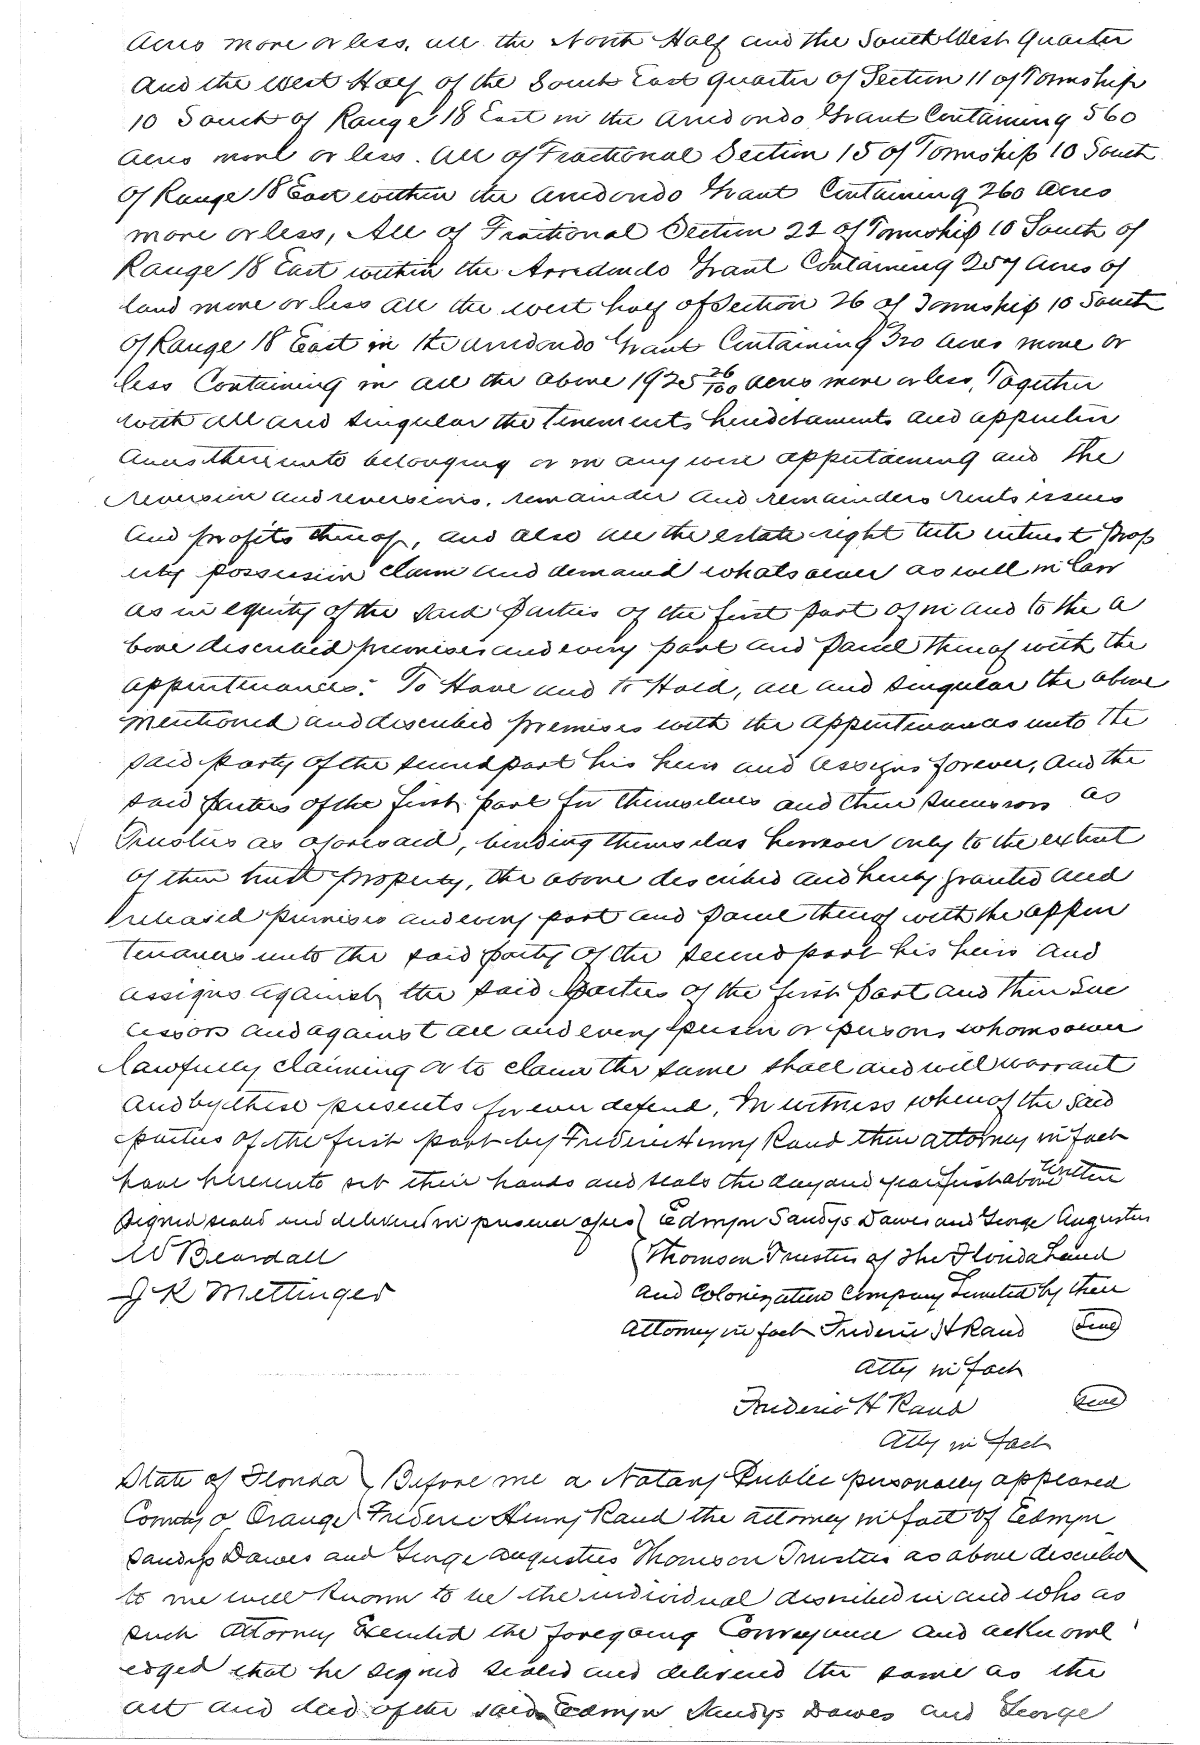 Acres more or less, all the North Half and the South West Quarter
And the West Half of the South East quarter of Section 11 of Township
10 South of Range 18 East in the Arredondo Grant Containing 560
Acres more or less. All of Fractional Section 15 of Township 10 South
of Range 18 East within the Arredondo Grant Containing 260 Acres
more or less, All of Fractional Section 22 of Township 10 South of
Range 18 East within the Arredondo Grant Containing 257 Acres of
land more or less all the west half of Section 26 of Township 10 South
of Range 18 East in the Arredondo Grant Containing 320 Acres more or
less Containing in all the above 1925 26/100 acres more or less, Together
with all and singular the tenements hereditaments and appurten
ances thereunto belonging or in any wise appertaining and the
reversion and reversions, remainder and remainders rents issues
and profits thereof, and also all the estate right title interest prop
erty possession claim and demand whatsoever as well in law
as in equity of the said parties of the first part of in and to the a
bove described premises and every part and parcel thereof with the
appurtenances: To Have and to Hold, all and singular the above
mentioned and described premises with the appurtenances unto the
said party of the second part his heirs and assigns forever, And the
said parties of the first part for themselves and their successors as
Trustees as aforesaid, binding themselves however only to the extent
of their trust property, the above described and hereby granted and
released premises and every part and parcel thereof with the appur
tenances unto the said party of the second part his heirs and
assigns against the said parties of the first part and their Suc
cessors and against all and every person or persons whomsoever
lawfully claiming or to claim the same shall and will warrant
and by these presents forever defend, In witness whereof the said
parties of the first part by Frederic Henry Rand their attorney in fact
have hereunto set their hands and seals the day and year first above written
Signed sealed and delivered in presence of us } Edwyn Sandys Dawes and George Augustus
W Beardall } Thomson Trustees of The Florida Land
J K Mettinger and Colonization Company Limited by their
Attorney in fact Frederic H Rand Seal
Atty in fact
Frederic H Rand Seal
Atty in fact
State of Florida } Before me a Notary Public personally appeared
County of Orange } Frederic Henry Rand the attorney in fact of Edwyn
Sandys Dawes and George Augustus Thomson Trustees as above described
to me well known to be the individual described in and who as
such Attorney Executed the foregoing Conveyance and acknowl
edged that he signed sealed and delivered the same as the
act and deed of the said Edwyn Sandys Dawes and George